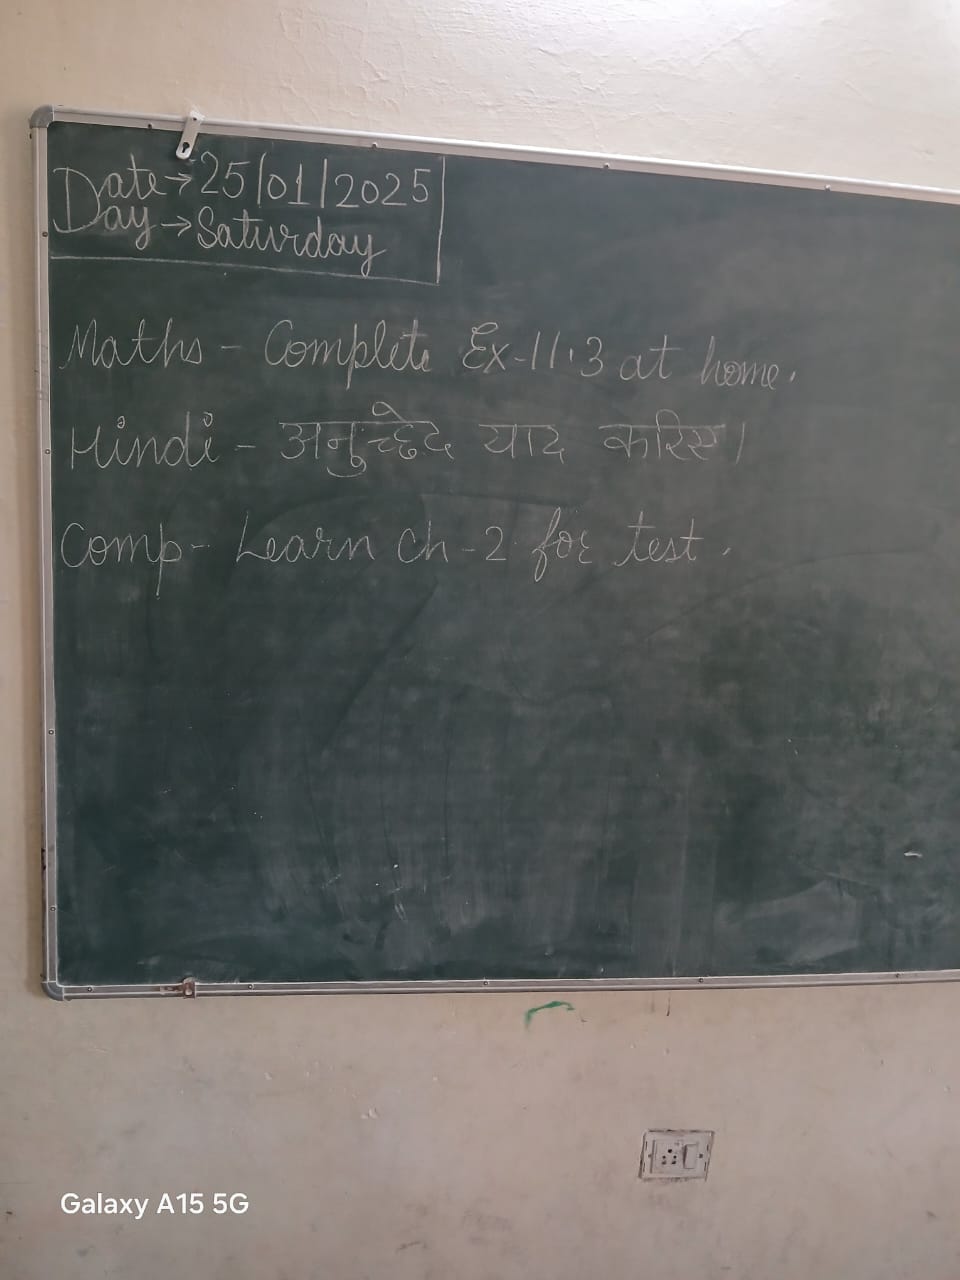 Date→25/01/2025
Day→Saturday
Maths - Complete Ex-11.3 at home.
Hindi - अनुच्छेद याद करिए।
Comp- Learn ch-2 for test.
Galaxy A15 5G